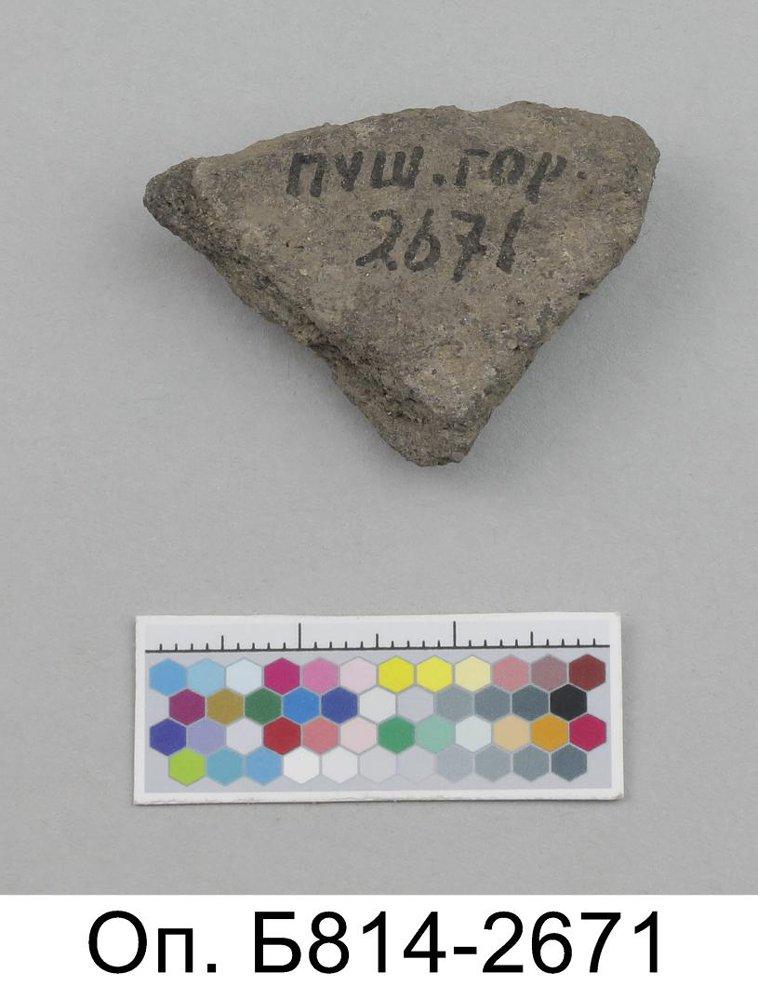 пуш.гор.
2671
Оп. Б814-2671